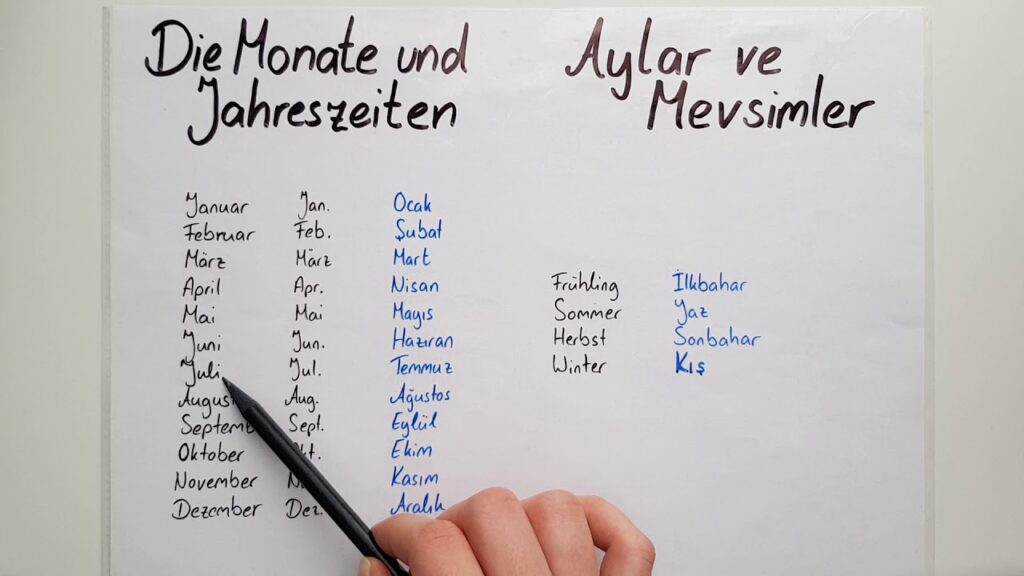 Die Monate und
Jahreszeiten
Aylar ve
Mevsimler
Januar Jan. Ocak
Februar Feb. Şubat
März März Mart
April Apr. Nisan
Mai Mai Mayıs
Juni Jun. Haziran
Juli Jul. Temmuz
Aug. Ağustos
Sept. Eylül
Oktober Ekim
November Kasım
Dezember Dez. Aralık
Frühling İlkbahar
Sommer Yaz
Herbst Sonbahar
Winter Kış